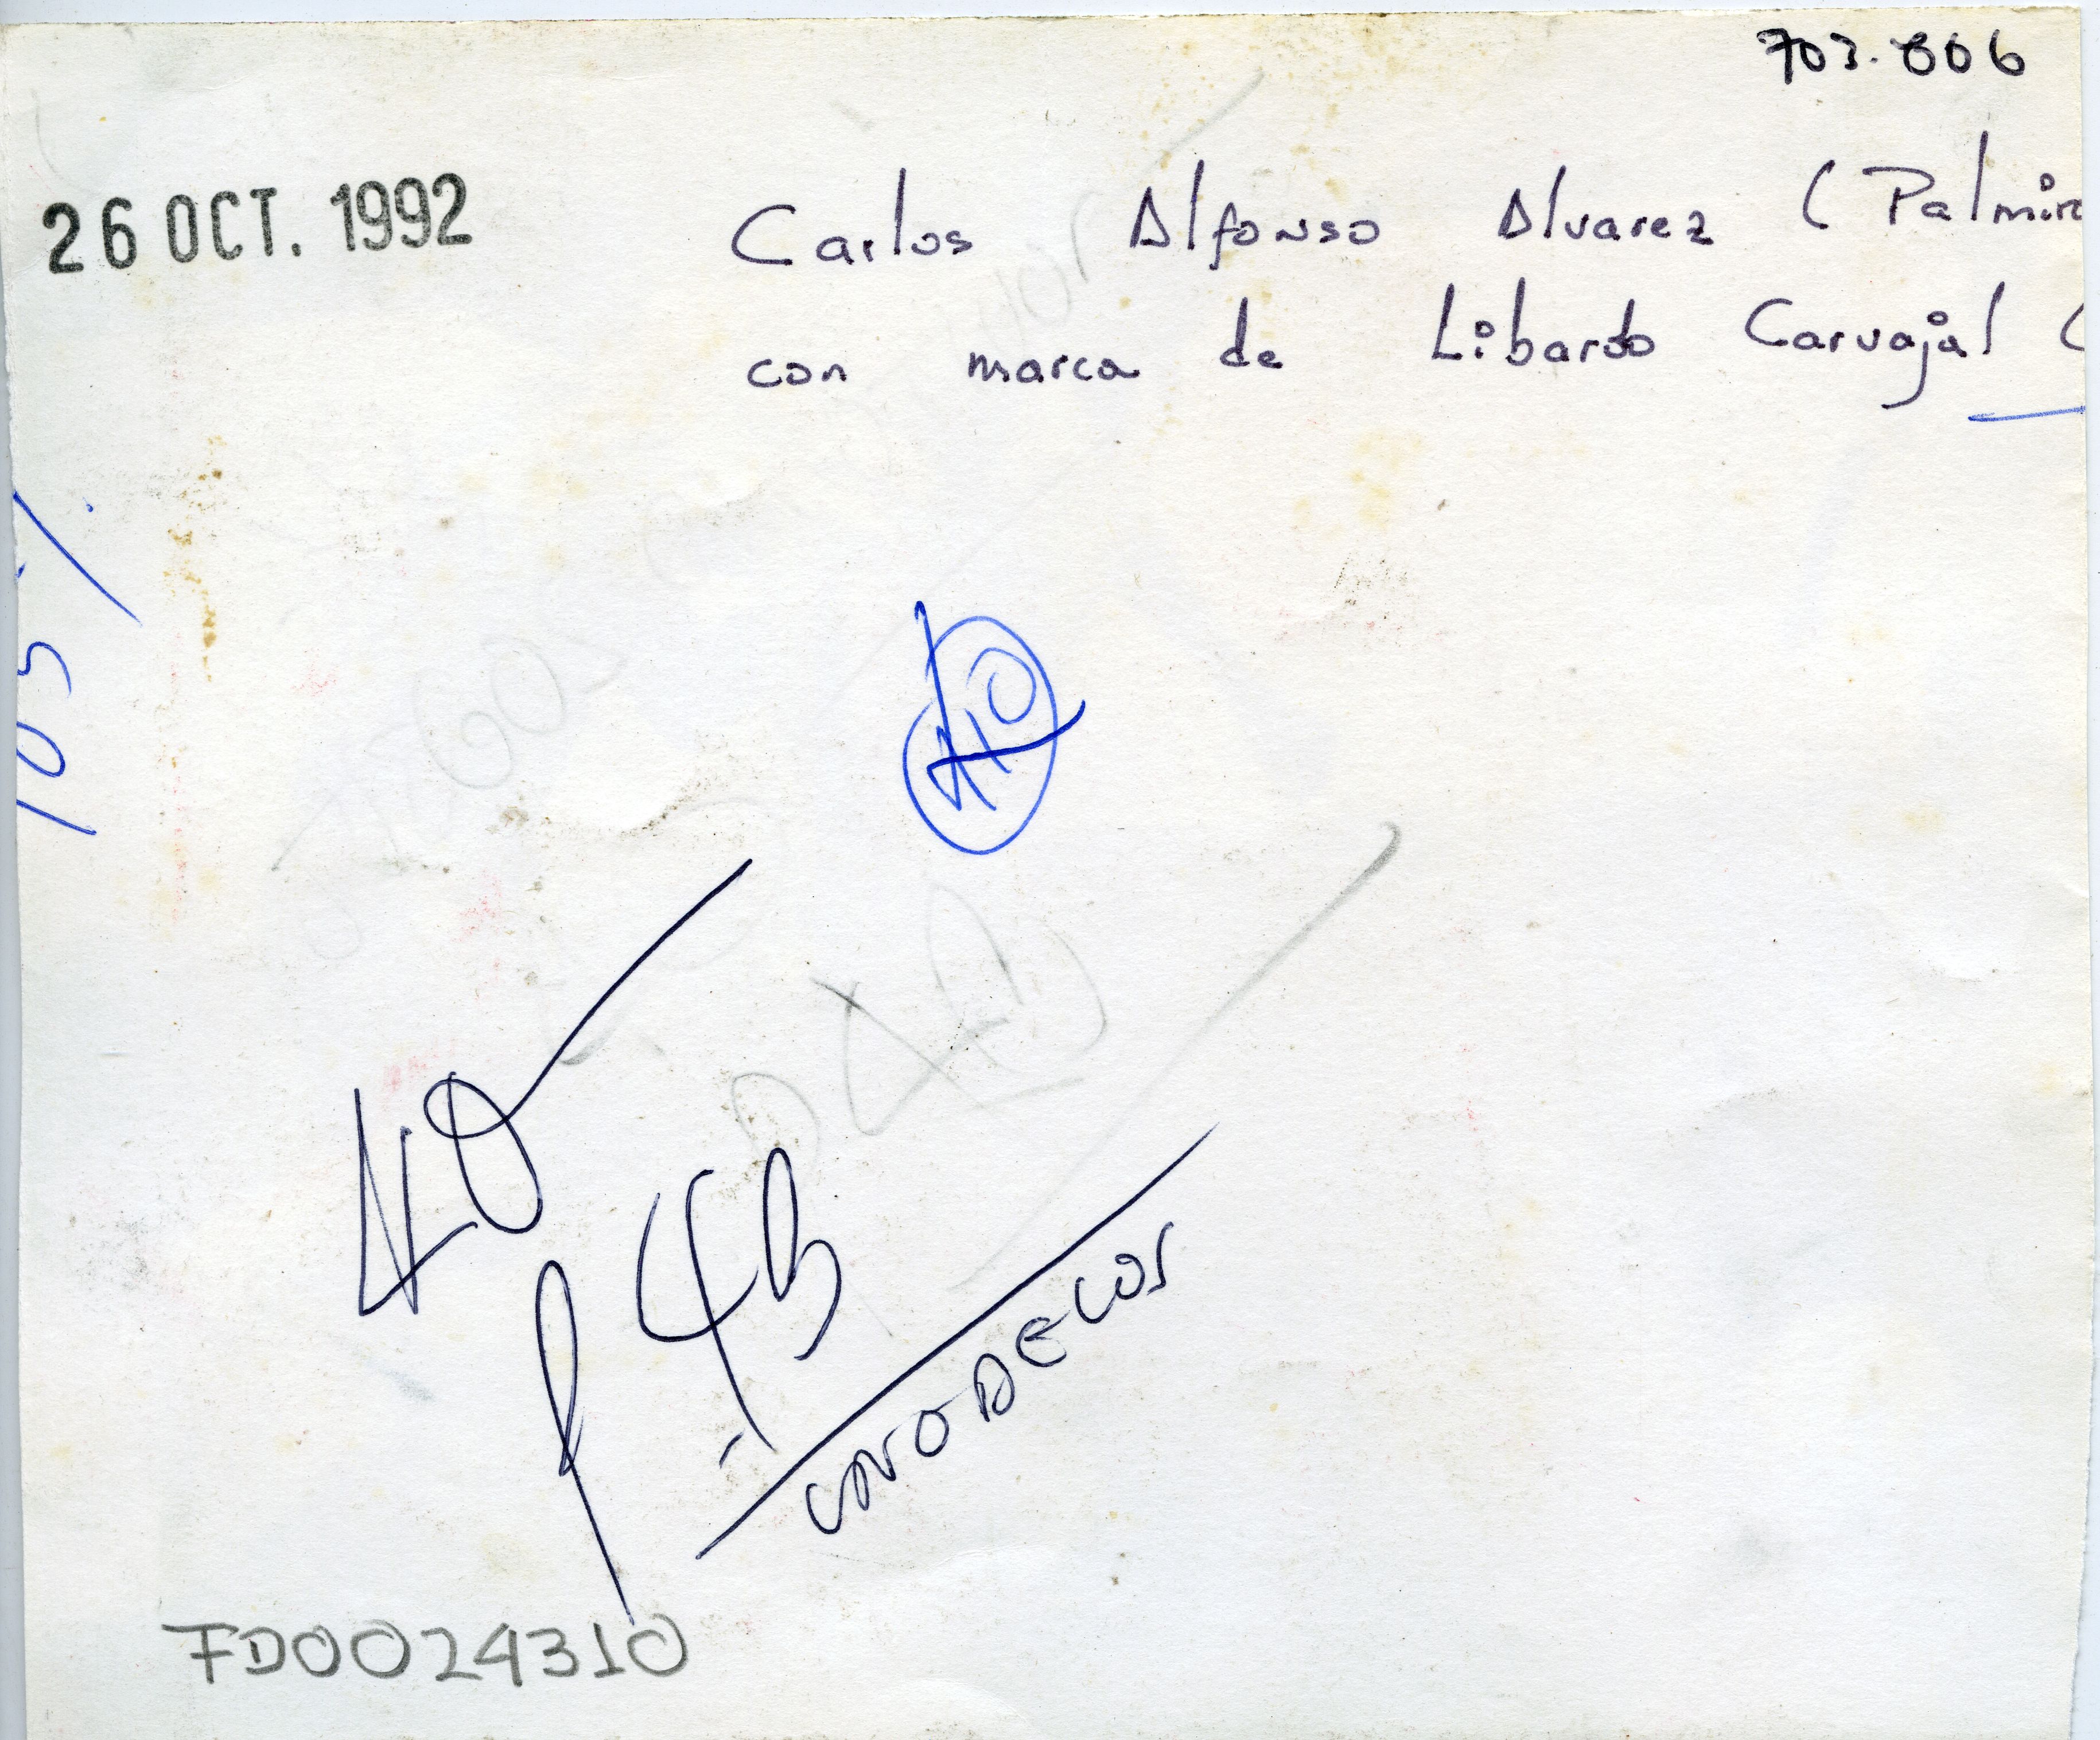 703.006
26 OCT. 1992
Carlos Alfonso Alvarez (Palmira
con marca de Libardo Carvajal (
105%
40
P 43
FD0024310